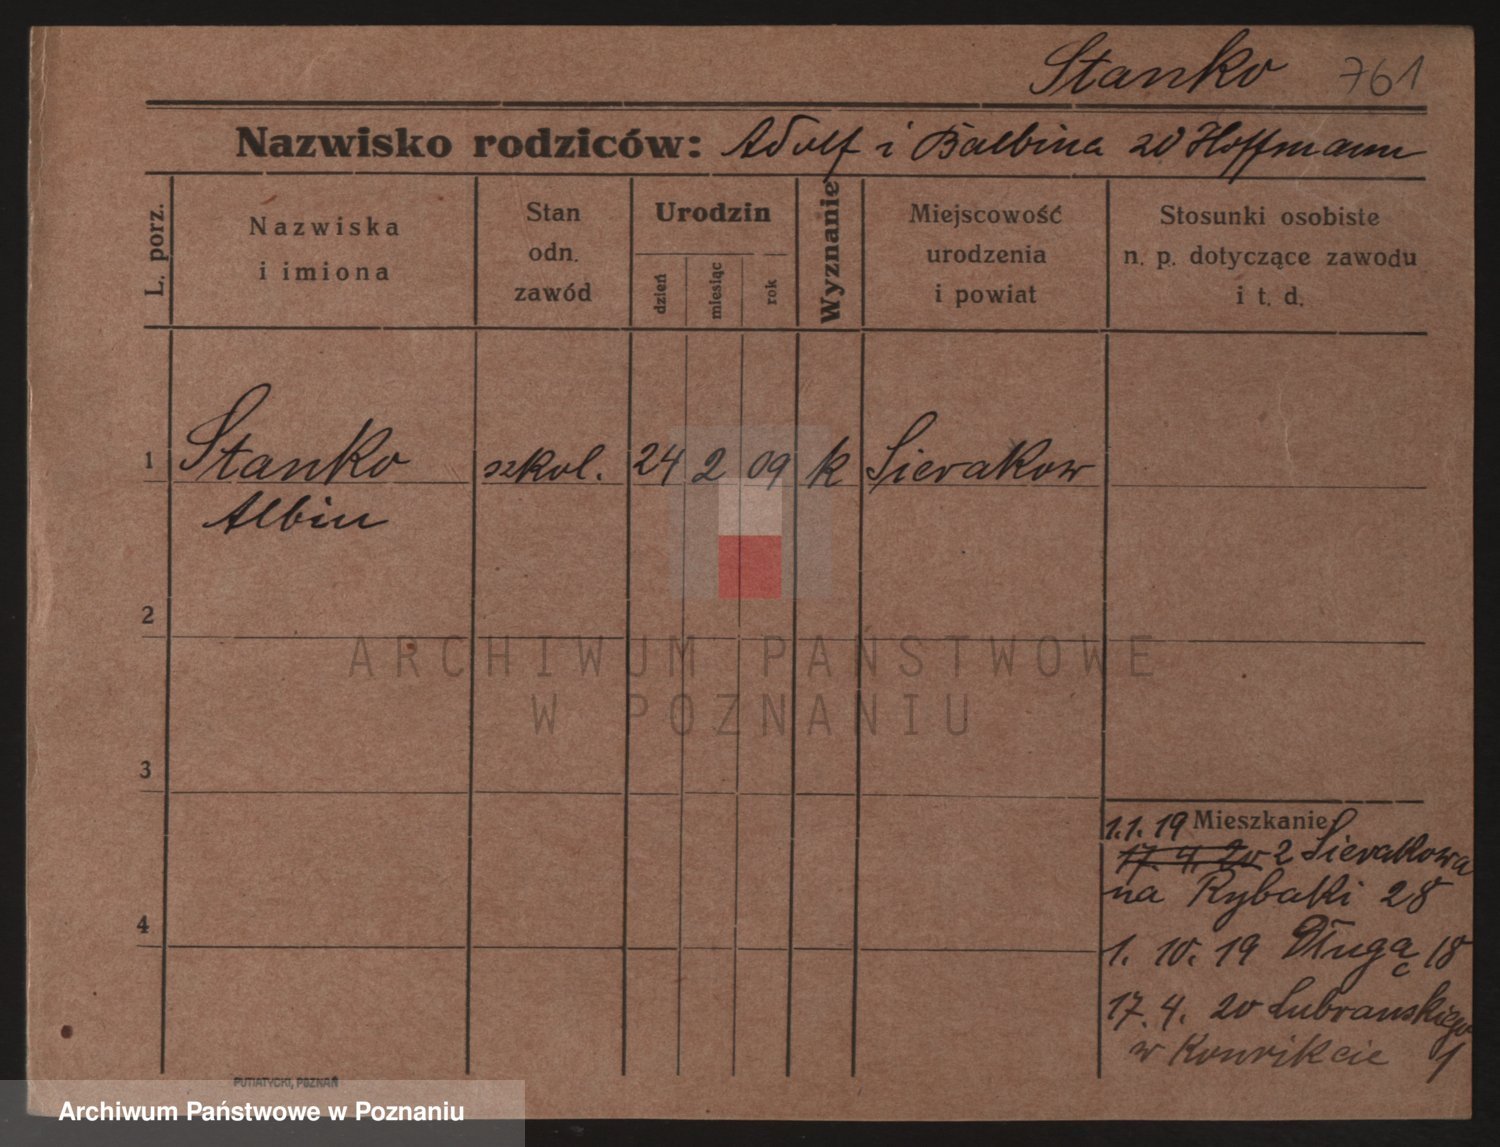 Stanko 761
Nazwisko rodziców: Adolf i Balbina zd Hoffmann
L. porz.
Nazwiska
i imiona
Stan
odn.
zawód
Urodzin
dzień
miesiąc
rok
Wyznanie
Miejscowość
urodzenia
i powiat
Stosunki osobiste
n. p. dotyczące zawodu
i t. d.
1 Stanko szkol. 24 2 09 k Sierakow
Albin
2
ARCHIWUM PAŃSTWOWE
W POZNANIU
3
1.1.19 Mieszkanie
17. 4. 20 z Sierakowa
na Rybaki 28
4
1. 10. 19 Długą 18
17. 4. 20 Lubranskiego 1
w Konvikcie
PUTIATYCKI, POZNAŃ
Archiwum Państwowe w Poznaniu